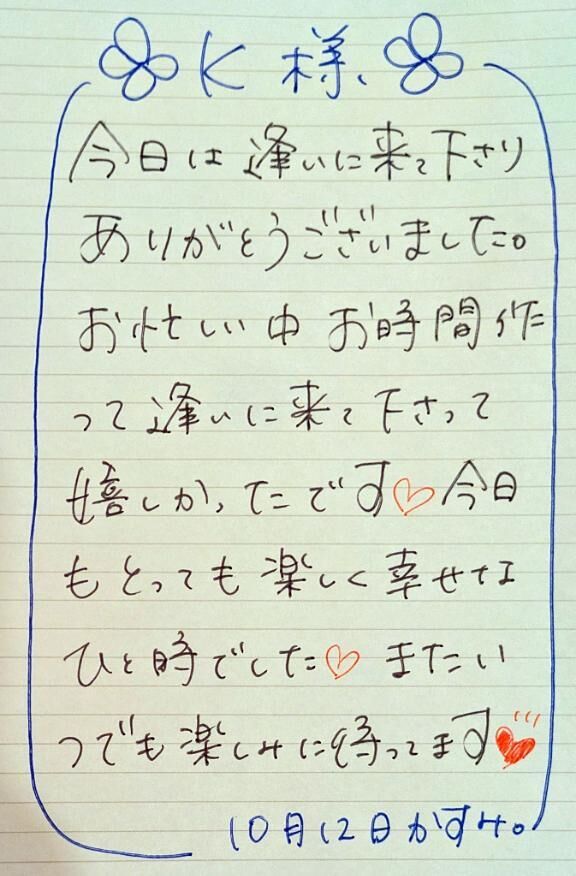 K様、
今日は逢いに来て下さり
ありがとうございました。
お忙しい中 お時間作
って逢いに来て下さって
嬉しかったです♡今日
もとっても楽しく幸せな
ひと時でした♡ またい
つでも楽しみに待ってます♥
10月12日かすみ。